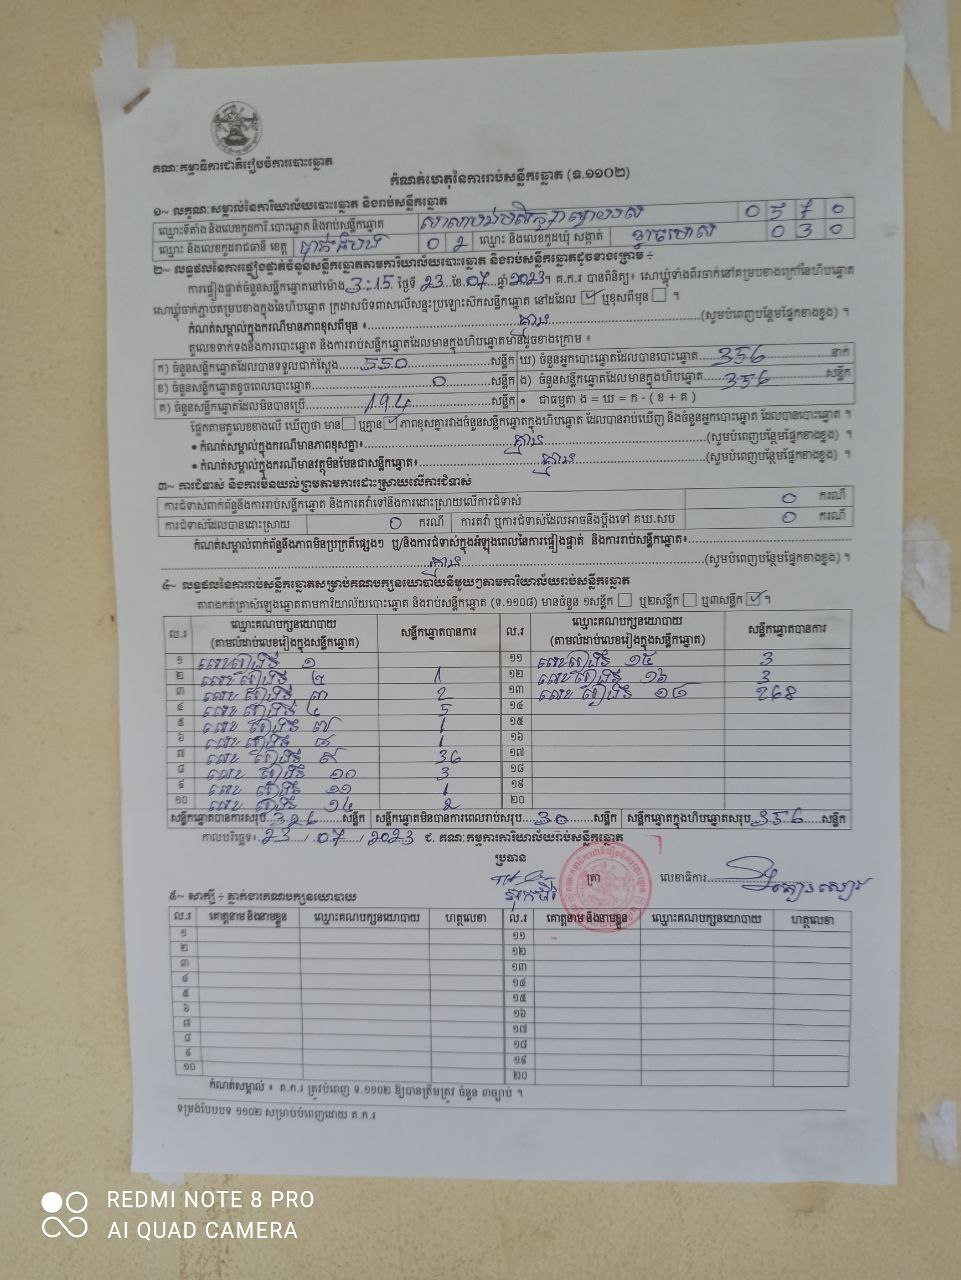 គណៈកម្មាធិការជាតិរៀបចំការបោះឆ្នោត
កំណត់ហេតុនៃការរាប់សន្លឹកឆ្នោត (ទ.១១០២)
១~ លក្ខណៈសម្គាល់នៃការិយាល័យបោះឆ្នោត និងរាប់សន្លឹកឆ្នោត
ឈ្មោះទីតាំង និងលេខកូដការិ.បោះឆ្នោត និងរាប់សន្លឹកឆ្នោត 0 5 7 0
ឈ្មោះ និងលេខកូដរាជធានី ខេត្ត បាត់ដំបង 0 2 ឈ្មោះ និងលេខកូដឃុំ សង្កាត់ 0 3 0
២~ លទ្ធផលនៃការផ្ទៀងផ្ទាត់ចំនួនសន្លឹកឆ្នោតតាមការិយាល័យបោះឆ្នោត និងរាប់សន្លឹកឆ្នោតដូចខាងក្រោម ÷
ការផ្ទៀងផ្ទាត់ចំនួនសន្លឹកឆ្នោតនៅម៉ោង 3:15 ថ្ងៃទី 23 ខែ 07 ឆ្នាំ 2023។ គ.ក.រ បានពិនិត្យ៖ សោឃ្មុំទាំងពីរចាក់នៅគម្របខាងក្រៅនៃហិបឆ្នោត
សោឃ្មុំចាក់ភ្ជាប់គម្របខាងក្នុងនៃហិបឆ្នោត ក្រដាសបិទពាសលើសន្ទះប្រឡោះសឹកសន្លឹកឆ្នោត នៅដដែល ឬខុសពីមុន ។
កំណត់សម្គាល់ក្នុងករណីមានភាពខុសពីមុន ៖ គ្មាន (សូមបំពេញបន្ថែមផ្នែកខាងខ្នង) ។
តួលេខទាក់ទងនឹងការបោះឆ្នោត និងការរាប់សន្លឹកឆ្នោតដែលមានក្នុងហិបឆ្នោតមានដូចខាងក្រោម ៖
ក) ចំនួនសន្លឹកឆ្នោតដែលបានទទួលជាក់ស្តែង 550 សន្លឹក ឃ) ចំនួនអ្នកបោះឆ្នោតដែលបានបោះឆ្នោត 356 នាក់
ខ) ចំនួនសន្លឹកឆ្នោតខូចពេលបោះឆ្នោត 0 សន្លឹក ង) ចំនួនសន្លឹកឆ្នោតដែលមានក្នុងហិបឆ្នោត 356 សន្លឹក
គ) ចំនួនសន្លឹកឆ្នោតដែលមិនបានប្រើ 194 សន្លឹក • ជាធម្មតា ង = ឃ = ក - ( ខ + គ )
ផ្អែកតាមតួលេខខាងលើ ឃើញថា មាន ឬគ្មាន ភាពខុសគ្នារវាងចំនួនសន្លឹកឆ្នោតក្នុងហិបឆ្នោត ដែលបានរាប់ឃើញ និងចំនួនអ្នកបោះឆ្នោត ដែលបានបោះឆ្នោត ។
• កំណត់សម្គាល់ក្នុងករណីមានភាពខុសគ្នា៖ គ្មាន (សូមបំពេញបន្ថែមផ្នែកខាងខ្នង) ។
• កំណត់សម្គាល់ក្នុងករណីមានវត្ថុមិនមែនជាសន្លឹកឆ្នោត៖ គ្មាន (សូមបំពេញបន្ថែមផ្នែកខាងខ្នង) ។
៣~ ការជំទាស់ និងការមិនយល់ព្រមតាមការដោះស្រាយលើការជំទាស់
ការជំទាស់ពាក់ព័ន្ធនឹងការរាប់សន្លឹកឆ្នោត និងការតវ៉ាទៅនឹងការដោះស្រាយលើការជំទាស់ 0 ករណី
ការជំទាស់ដែលបានដោះស្រាយ 0 ករណី ការតវ៉ា ឬការជំទាស់ដែលអាចនឹងប្តឹងទៅ គឃ.សប 0 ករណី
កំណត់សម្គាល់ពាក់ព័ន្ធនឹងភាពមិនប្រក្រតីផ្សេងៗ ឬ/និងការជំទាស់ក្នុងអំឡុងពេលនៃការផ្ទៀងផ្ទាត់ និងការរាប់សន្លឹកឆ្នោត៖
គ្មាន (សូមបំពេញបន្ថែមផ្នែកខាងខ្នង) ។
៤~ លទ្ធផលនៃការរាប់សន្លឹកឆ្នោតសម្រាប់គណបក្សនយោបាយនីមួយៗតាមការិយាល័យរាប់សន្លឹកឆ្នោត
តារាងកត់ត្រាសំឡេងឆ្នោតតាមការិយាល័យបោះឆ្នោត និងរាប់សន្លឹកឆ្នោត (ទ.១១០៨) មានចំនួន ១សន្លឹក ឬ២សន្លឹក ឬ៣សន្លឹក ។
ល.រ ឈ្មោះគណបក្សនយោបាយ (តាមលំដាប់លេខរៀងក្នុងសន្លឹកឆ្នោត) សន្លឹកឆ្នោតបានការ ល.រ ឈ្មោះគណបក្សនយោបាយ (តាមលំដាប់លេខរៀងក្នុងសន្លឹកឆ្នោត) សន្លឹកឆ្នោតបានការ
១ លេខរៀងទី ១ ១១ លេខរៀងទី ១៥ 3
២ លេខរៀងទី ២ 1 ១២ លេខរៀងទី ១៦ 3
៣ លេខរៀងទី ៣ 2 ១៣ លេខរៀងទី ១៨ 268
៤ លេខរៀងទី ៤ 5 ១៤
៥ លេខរៀងទី ៧ 1 ១៥
៦ លេខរៀងទី ៨ 1 ១៦
៧ លេខរៀងទី ៩ 36 ១៧
៨ លេខរៀងទី ១០ 3 ១៨
៩ លេខរៀងទី ១១ 1 ១៩
១០ លេខរៀងទី ១៤ 2 ២០
សន្លឹកឆ្នោតបានការសរុប 326 សន្លឹក សន្លឹកឆ្នោតមិនបានការពេលរាប់សរុប 30 សន្លឹក សន្លឹកឆ្នោតក្នុងហិបឆ្នោតសរុប 356 សន្លឹក
កាលបរិច្ឆេទ៖ 23 / 07 / 2023 ជ. គណៈកម្មការការិយាល័យរាប់សន្លឹកឆ្នោត
ប្រធាន
ត្រា លេខាធិការ
៥~ សាក្សី ÷ ភ្នាក់ងារគណបក្សនយោបាយ
ល.រ គោត្តនាម និងនាមខ្លួន ឈ្មោះគណបក្សនយោបាយ ហត្ថលេខា ល.រ គោត្តនាម និងនាមខ្លួន ឈ្មោះគណបក្សនយោបាយ ហត្ថលេខា
១ ១១
២ ១២
៣ ១៣
៤ ១៤
៥ ១៥
៦ ១៦
៧ ១៧
៨ ១៨
៩ ១៩
១០ ២០
កំណត់សម្គាល់ ៖ គ.ក.រ ត្រូវបំពេញ ទ.១១០២ ឱ្យបានត្រឹមត្រូវ ចំនួន ៣ច្បាប់ ។
ទម្រង់បែបបទ ១១០២ សម្រាប់បំពេញដោយ គ.ក.រ
REDMI NOTE 8 PRO
AI QUAD CAMERA